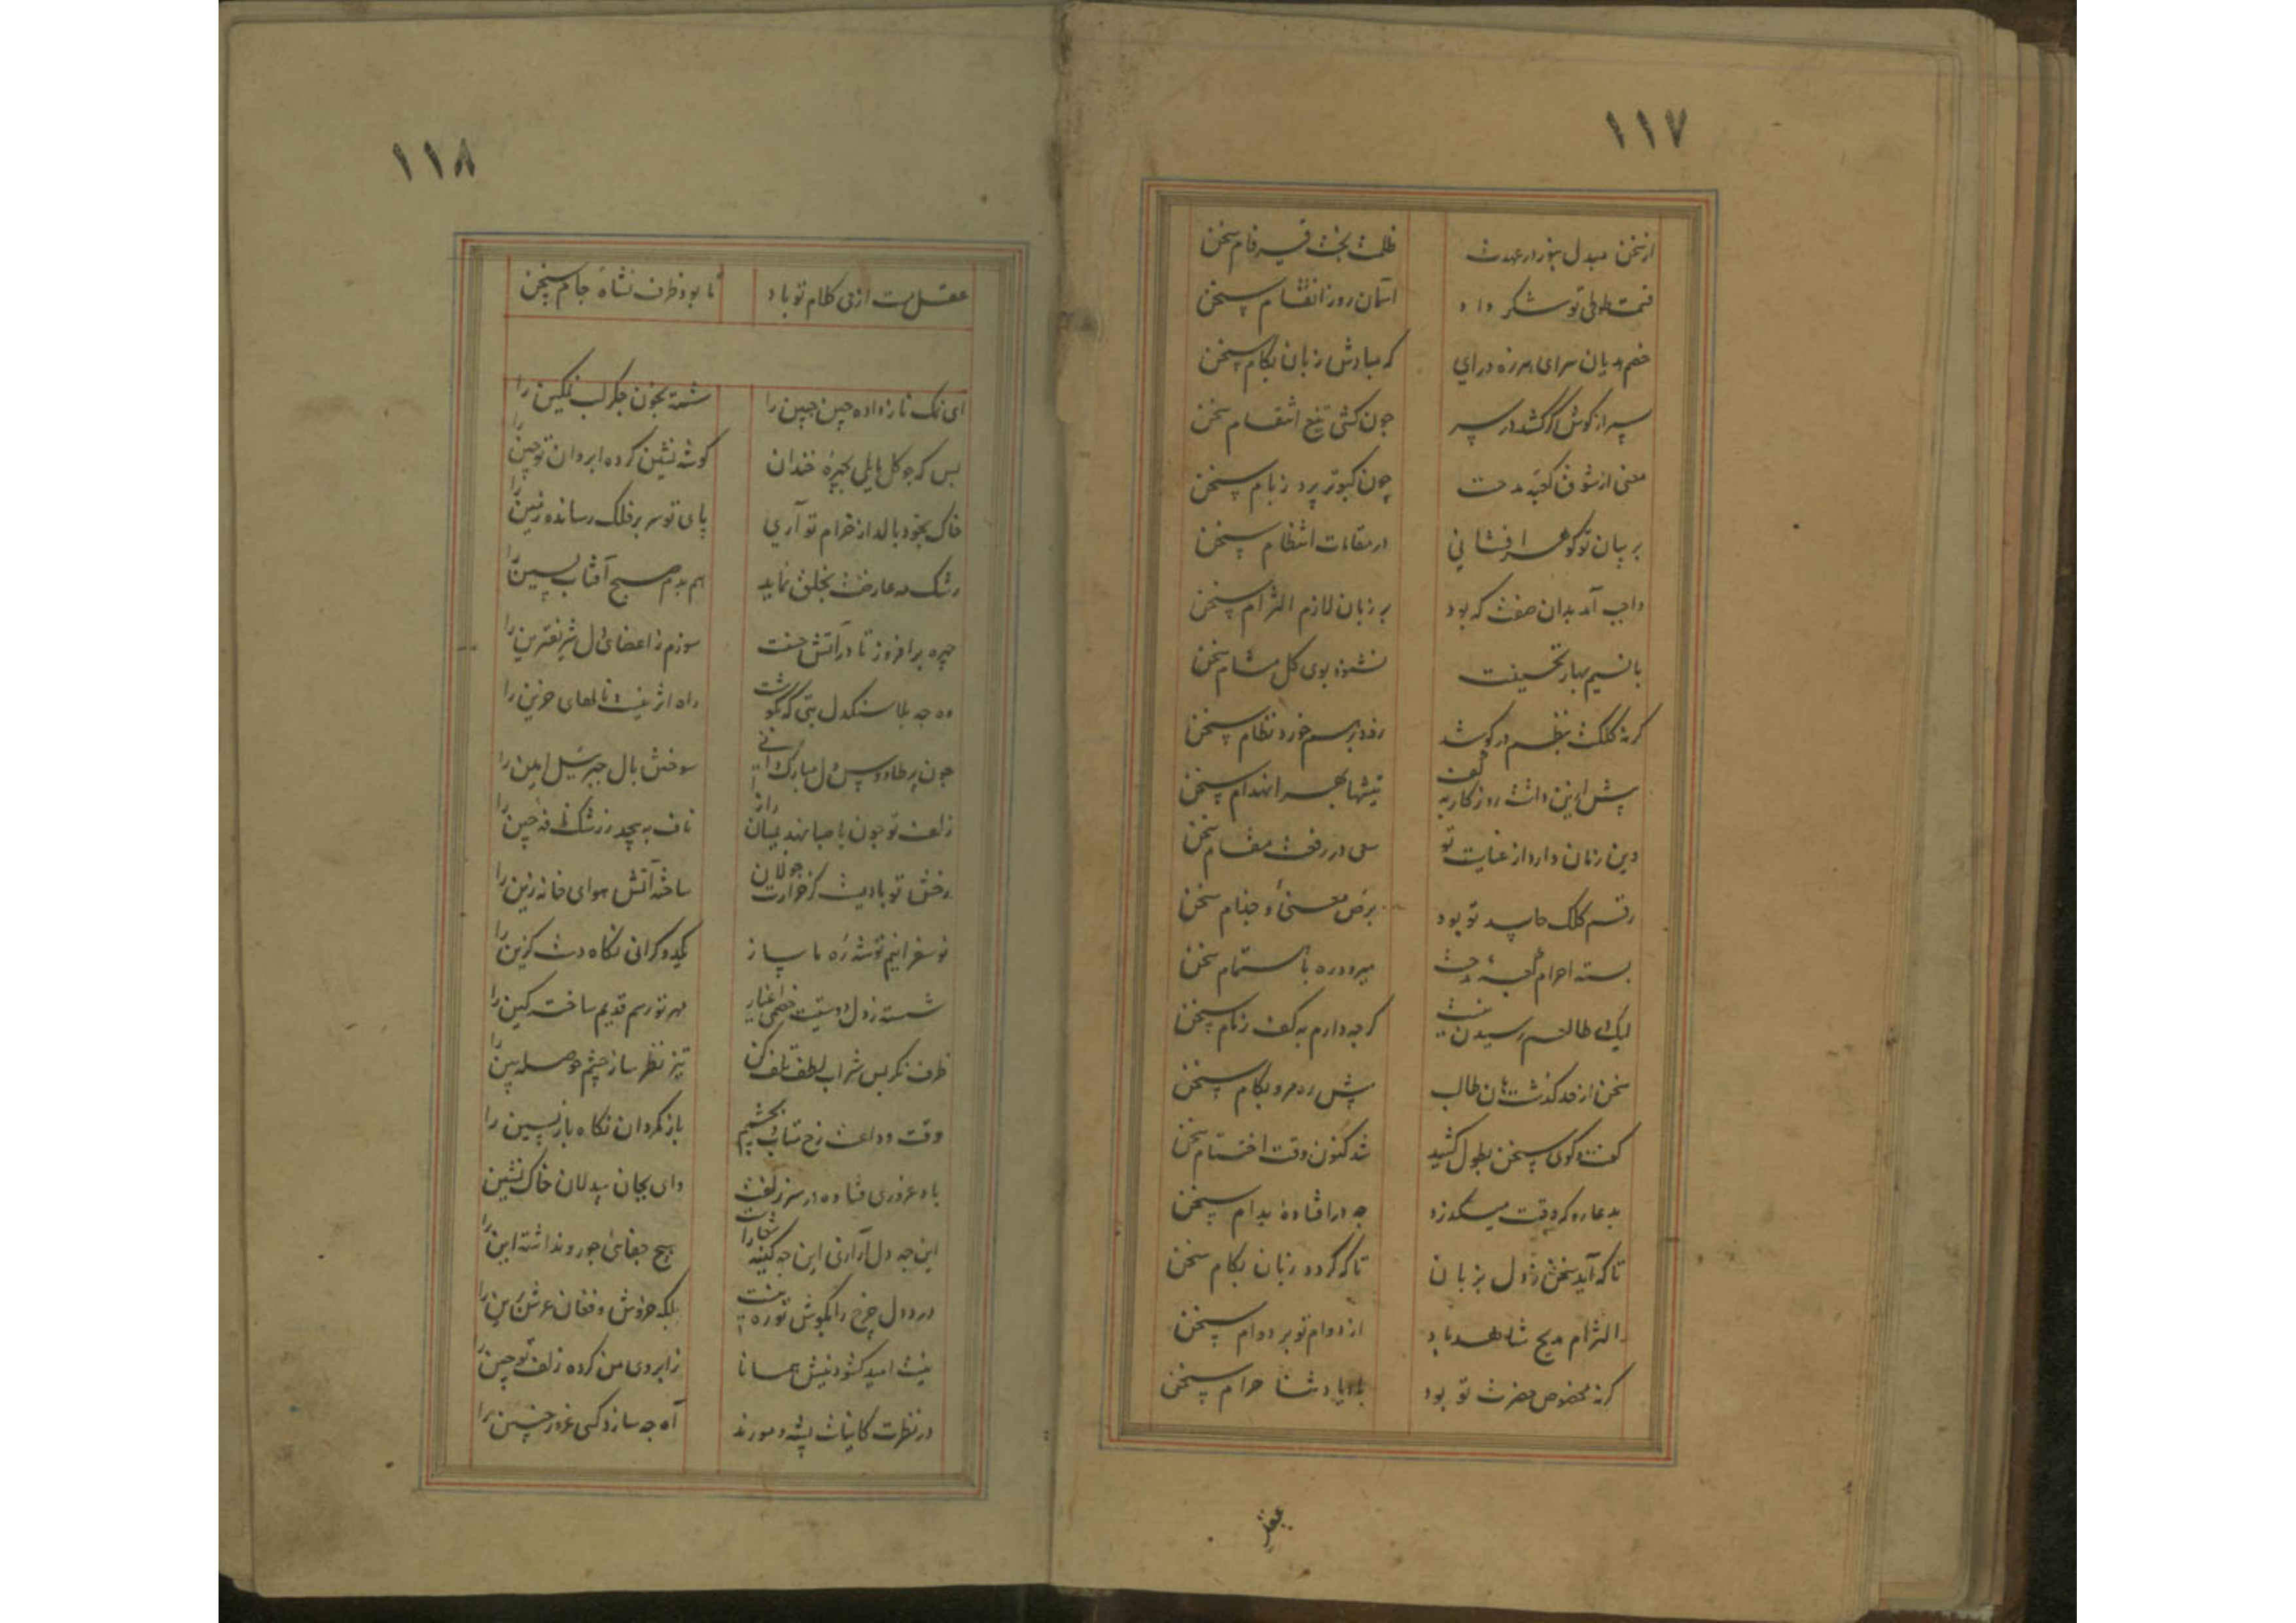 ۱۱۷
از سخن مبدل بنور در عهدت ظلمت بخت قیرفام سخن
قسمت طوطی تو شکر داد آسمان روز انقسام سخن
خصم هذیان سرای هرزه درای که مبادش زبان بکام سخن
سپر از گوش گر کشد در سر چون کشی تیغ انتقام سخن
معنی از شوق کعبه مدحت چون کبوتر پرد ز بام سخن
بر بیان تو گوهر افشانی در مقامات انتظام سخن
واجب آمد بدان صفت که بود بر زبان لازم التزام سخن
با نسیم بهار تحسینت نشنود بوی گل مشام سخن
گرنه کلکت بنظم در کوشد رود از هم خورد نظام سخن
پیش ازین داشت روزگار به کف تیشها بهر انهدام سخن
دین زمان دارد از عنایت تو سعی در رفعت مقام سخن
رقم کلک حاسد تو بود برص معنی و جذام سخن
بسته احرام کعبهٔ مدحت میرود ره با ستمام سخن
لیک ای طالعم رسیدن نیست گرچه دارم به کف زمام سخن
سخن از حد گذشت هان طالب پیش ره مرو بکام سخن
گفت و گوی سخن بطول کشید شد کنون وقت اختتام سخن
بدعا رو که وقت میگذرد چه درافتادهٔ بدام سخن
تا که آید سخن ز دل بزبان تا که گردد زبان بکام سخن
التزام مدیح شاهد باد از دوام تو بر دوام سخن
گرنه مخصوص حضرت تو بود باد یا دشنا حرام سخن
عقل
۱۱۸
عقل مست از می کلام تو باد تا بود ظرف نشاهٔ جام سخن
ای نمک ناز داده چین جبین را شسته بخون جگر لب نمکین را
بس که چو گل مایلی بچهرهٔ خندان گوشه نشین کرده ابروان تو چین را
خاک بخود بالد از خرام تو آری پای تو سر بر فلک رسانده زمین را
رشک مه عارضت بخلق نماید هم بدم صبح آفتاب پسین را
چهره برافروز تا در آتش حسنت سوزم ز اعضای دل شریفترین را
وه چه بلا سنگدل بتی که بگوشت راه اثر نیست نالهای حزین را
چون پر طاووس دل مبارک آنی سوختش بال جبرئیل امین را
زلف تو چون با صبا نهد بمیان راز ناف به پیچد ز رشک نافهٔ چین را
رخش تو بادیست کز حرارت جولان ساخته آتش هوای خانه زین را
نوسفرانیم توشهٔ ره ما ساز یکدو گرانی نگاه دشت گزین را
شسته ز دل دوستیت خصمی اغیار مهر تو رسم قدیم ساخته کین را
ظرف نگر پس شراب لطف تلف کن تیز نظر ساز چشم حوصله بین را
وقت وداعت رخ متاب بخشم باز نگردان نگاه بازپسین را
باد غروری فتاده در سر زلفت وای بجان بیدلان خاک نشین
این چه دل آزاری این چه کینه شعاریست هیچ جفای جور و نداشته این را
درد دل چرخ را بگوش تو ره نیست بلکه خروش و فغان عرش برین را
نیست امید گشودنش همانا ز ابروی من کرده زلف تو چین را
در نظرت کاینات پشه و مورند آه چه سازد کسی غرور چنین را